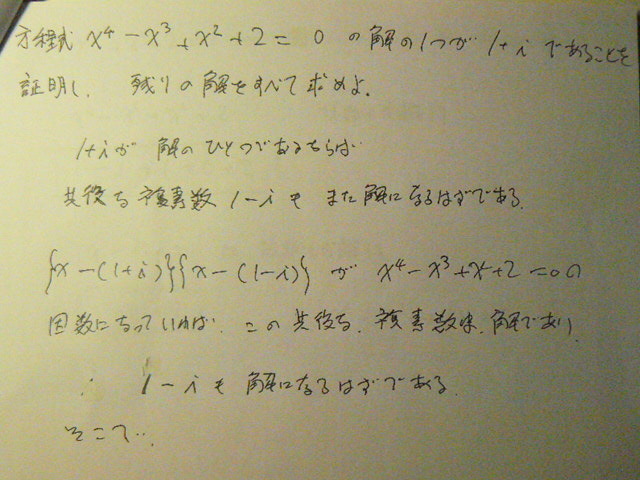 方程式 x⁴-x³+x²+2=0 の解の1つが 1+i であることを
証明し、 残りの解をすべて求めよ。
1+iが 解のひとつであるならば
共役な複素数 1-i も また解になるはずである。
{x-(1+i)}{x-(1-i)} が x⁴-x³+x+2=0の
因数になっていれば、この共役な、複素数は、解であり
∴ 1-i も 解になるはずである。
そこで…